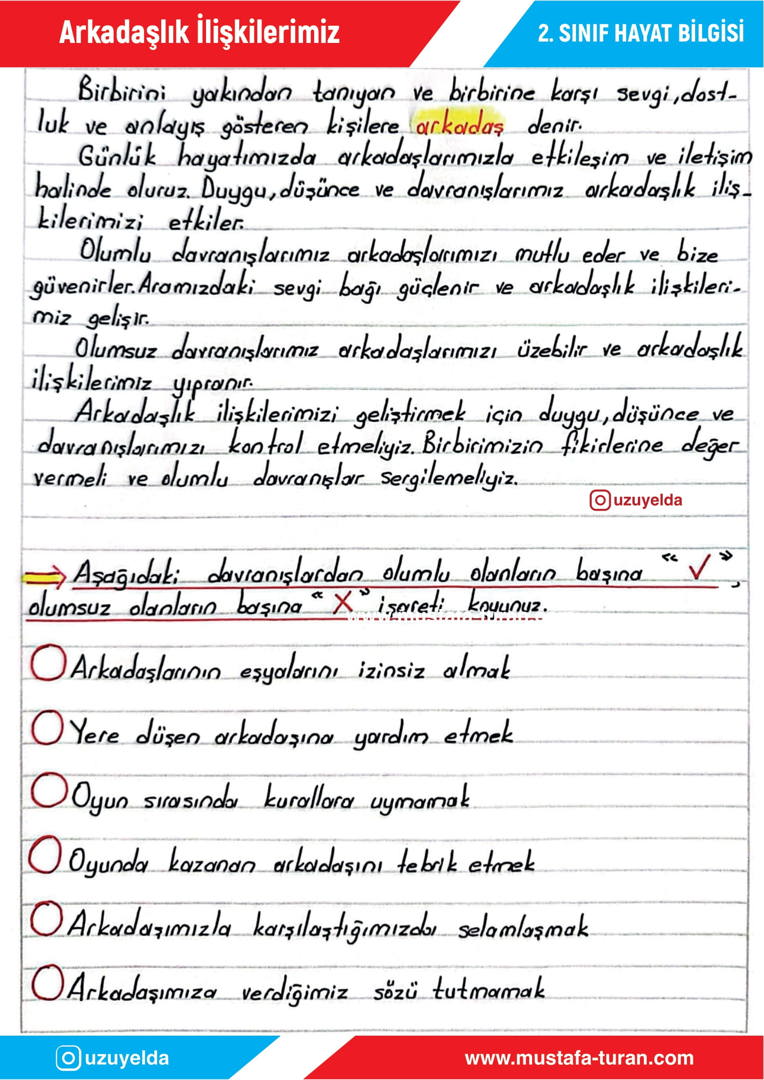 Arkadaşlık İlişkilerimiz
2. SINIF HAYAT BİLGİSİ
Birbirini yakından tanıyan ve birbirine karşı sevgi, dost-
luk ve anlayış gösteren kişilere arkadaş denir.
Günlük hayatımızda arkadaşlarımızla etkileşim ve iletişim
halinde oluruz. Duygu, düşünce ve davranışlarımız arkadaşlık iliş-
kilerimizi etkiler.
Olumlu davranışlarımız arkadaşlarımızı mutlu eder ve bize
güvenirler. Aramızdaki sevgi bağı güçlenir ve arkadaşlık ilişkileri-
miz gelişir.
Olumsuz davranışlarımız arkadaşlarımızı üzebilir ve arkadaşlık
ilişkilerimiz yıpranır.
Arkadaşlık ilişkilerimizi geliştirmek için duygu, düşünce ve
davranışlarımızı kontrol etmeliyiz. Birbirimizin fikirlerine değer
vermeli ve olumlu davranışlar sergilemeliyiz.
uzuyelda
⇒ Aşağıdaki davranışlardan olumlu olanların başına "✓",
olumsuz olanların başına "X" işareti koyunuz.
Arkadaşlarının eşyalarını izinsiz almak
Yere düşen arkadaşına yardım etmek
Oyun sırasında kurallara uymamak
Oyunda kazanan arkadaşını tebrik etmek
Arkadaşımızla karşılaştığımızda selamlaşmak
Arkadaşımıza verdiğimiz sözü tutmamak
uzuyelda
www.mustafa-turan.com